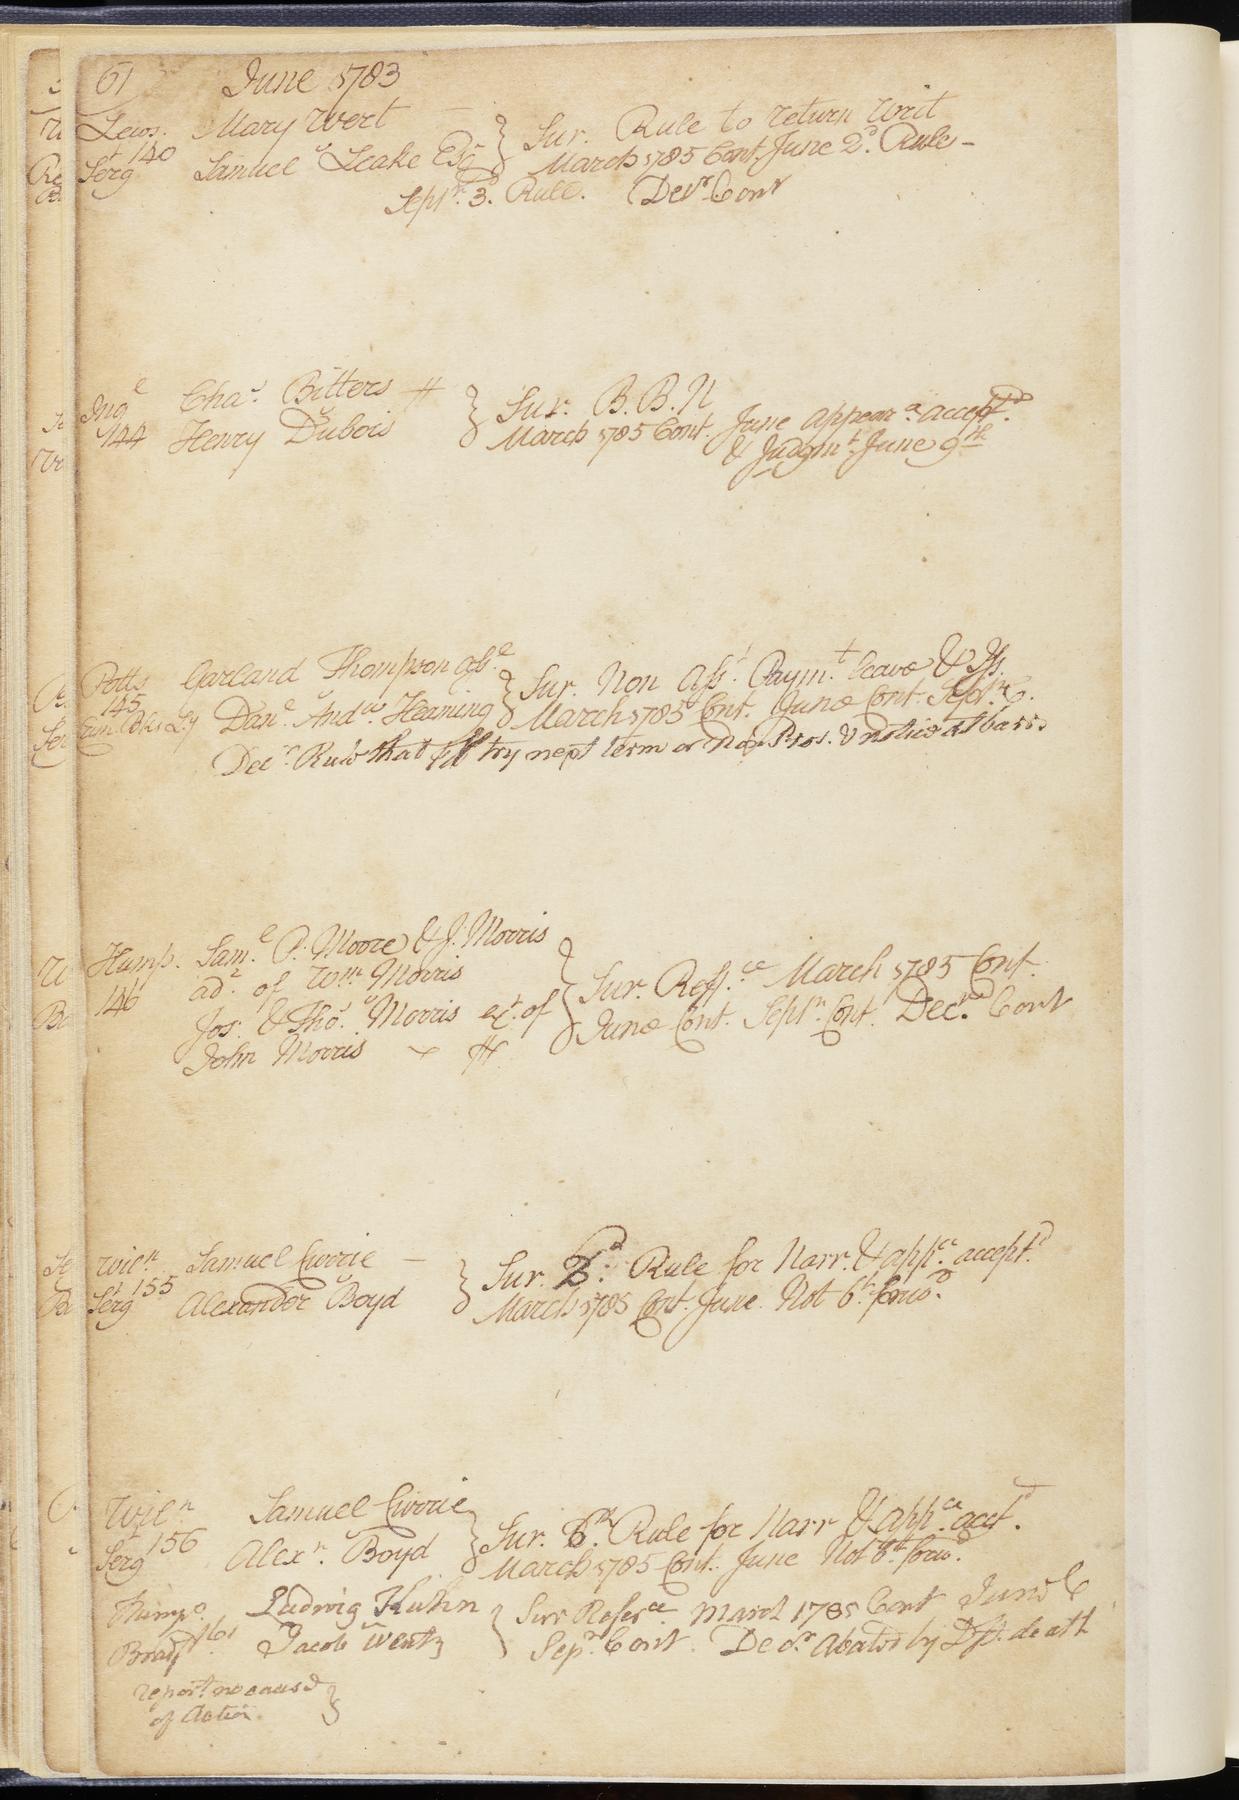 61 June 1783
Lews. Mary Wert — } Sur. Rule to return writ
140
Serg^t Samuel Leake Esq^r March 1785 Cont. June 2^d. Rule -
Sept^r. 3^d. Rule. Dec^r Cont
Ing^l Cha^s. Bitters # } Sur. B. B. N
144 Henry Dubois March 1785 Cont. June appear^a. accept^d.
& Judgm^t. June 9^th
Potts Garland Thompson } Sur. Non Ass^t. Paym^t. leave &
145
Dan^l. And^w. Heaning March 1785 Cont. June Cont. Sept^r. C.
Dec^r. Rule that try next term or Non Pros. & notice at bar
Hump. Sam^l. P. Moore & J. Morris
146 ad^s. of W^m. Morris } Sur. Reff^ce March 1785 Cont.
Jos. & Tho^s. Morris ex^s. of June Cont. Sept^r. Cont. Dec^r. Cont
John Morris #
Wilc^n Samuel Currie — } Sur. 6^th. Rule for Narr. & app^ce. accept^d.
155
Serg^t Alexander Boyd March 1785 Cont. June. Not
Wilc^n Samuel Currie } Sur. 6^th. Rule for Narr & app^ce. acct^d.
156
Serg^t Alex^r. Boyd March 1785 Cont. June Not
Ludwig Kuhn } Sur Refer^ce March 1785 Cont June C
161
Brad^f. Jacob Wentz Sep^r. Cont. Dec^r. Abates by Df^t. death
report no cause
of Action. }